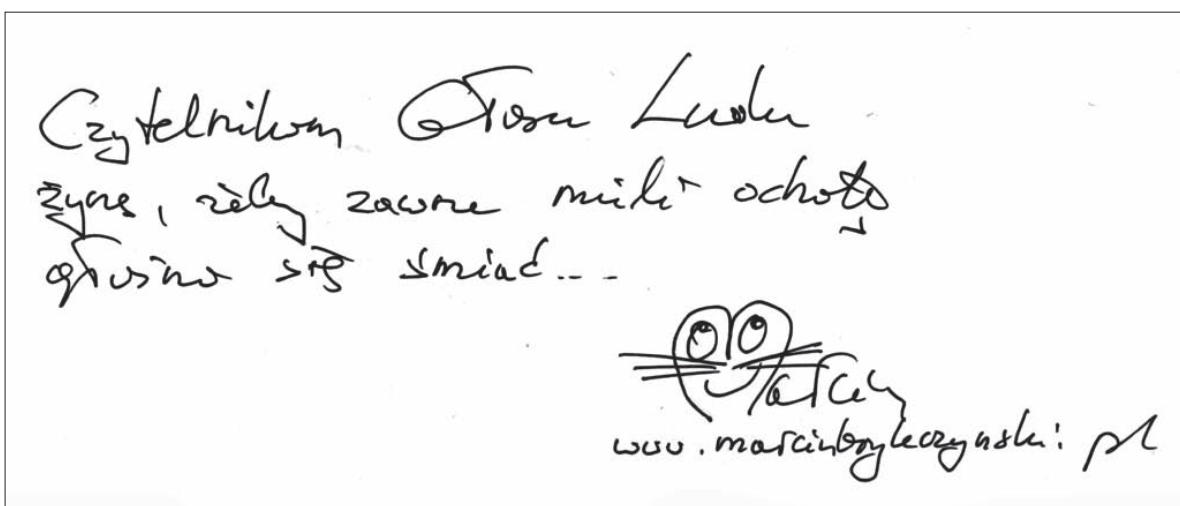 Czytelnikom Głosu Ludu
życzę, żeby zawsze mieli ochotę
głośno się śmiać...
Marcin
www.marcinbrykczynski.pl